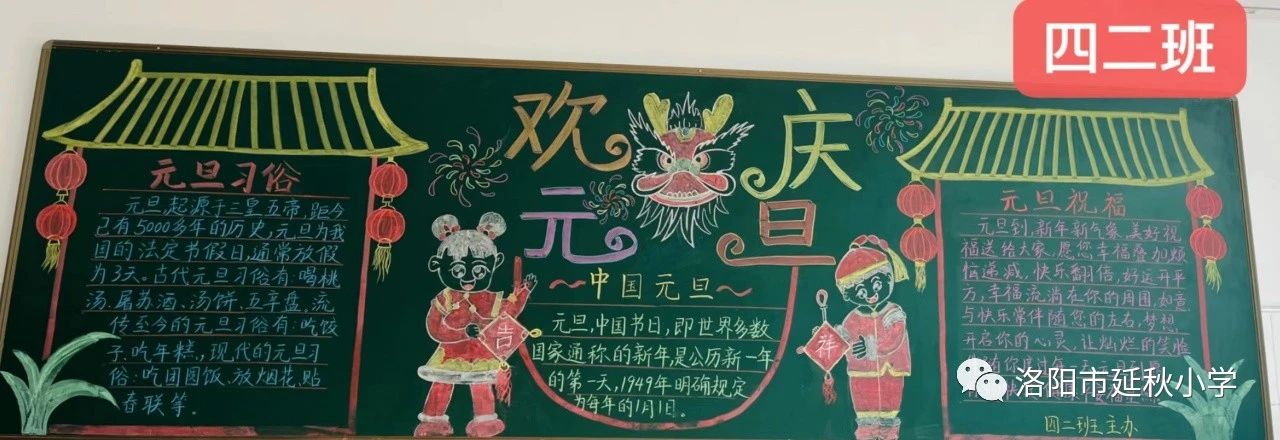 四二班
欢
庆
元
旦
元旦习俗
元旦,起源于三皇五帝,距今
已有5000多年的历史,元旦为我
国的法定节假日,通常放假
为3天。古代元旦习俗有:喝桃
汤、屠苏酒、汤饼、五辛盘。流
传至今的元旦习俗有:吃饺
子、吃年糕,现代的元旦习
俗:吃团圆饭、放烟花、贴
春联等。
~中国元旦~
元旦,中国节日,即世界多数
国家通称的新年是公历新一年
的第一天,1949年明确规定
为每年的1月1日。
吉
祥
元旦祝福
元旦到,新年新气象,美好祝
福送给大家,愿您幸福叠加烦
恼递减,快乐翻倍,好运开平
方,幸福流淌在你的周围,如意
与快乐常伴随您的左右,梦想
开启你的心灵,让灿烂的笑脸
四二班主办
洛阳市延秋小学